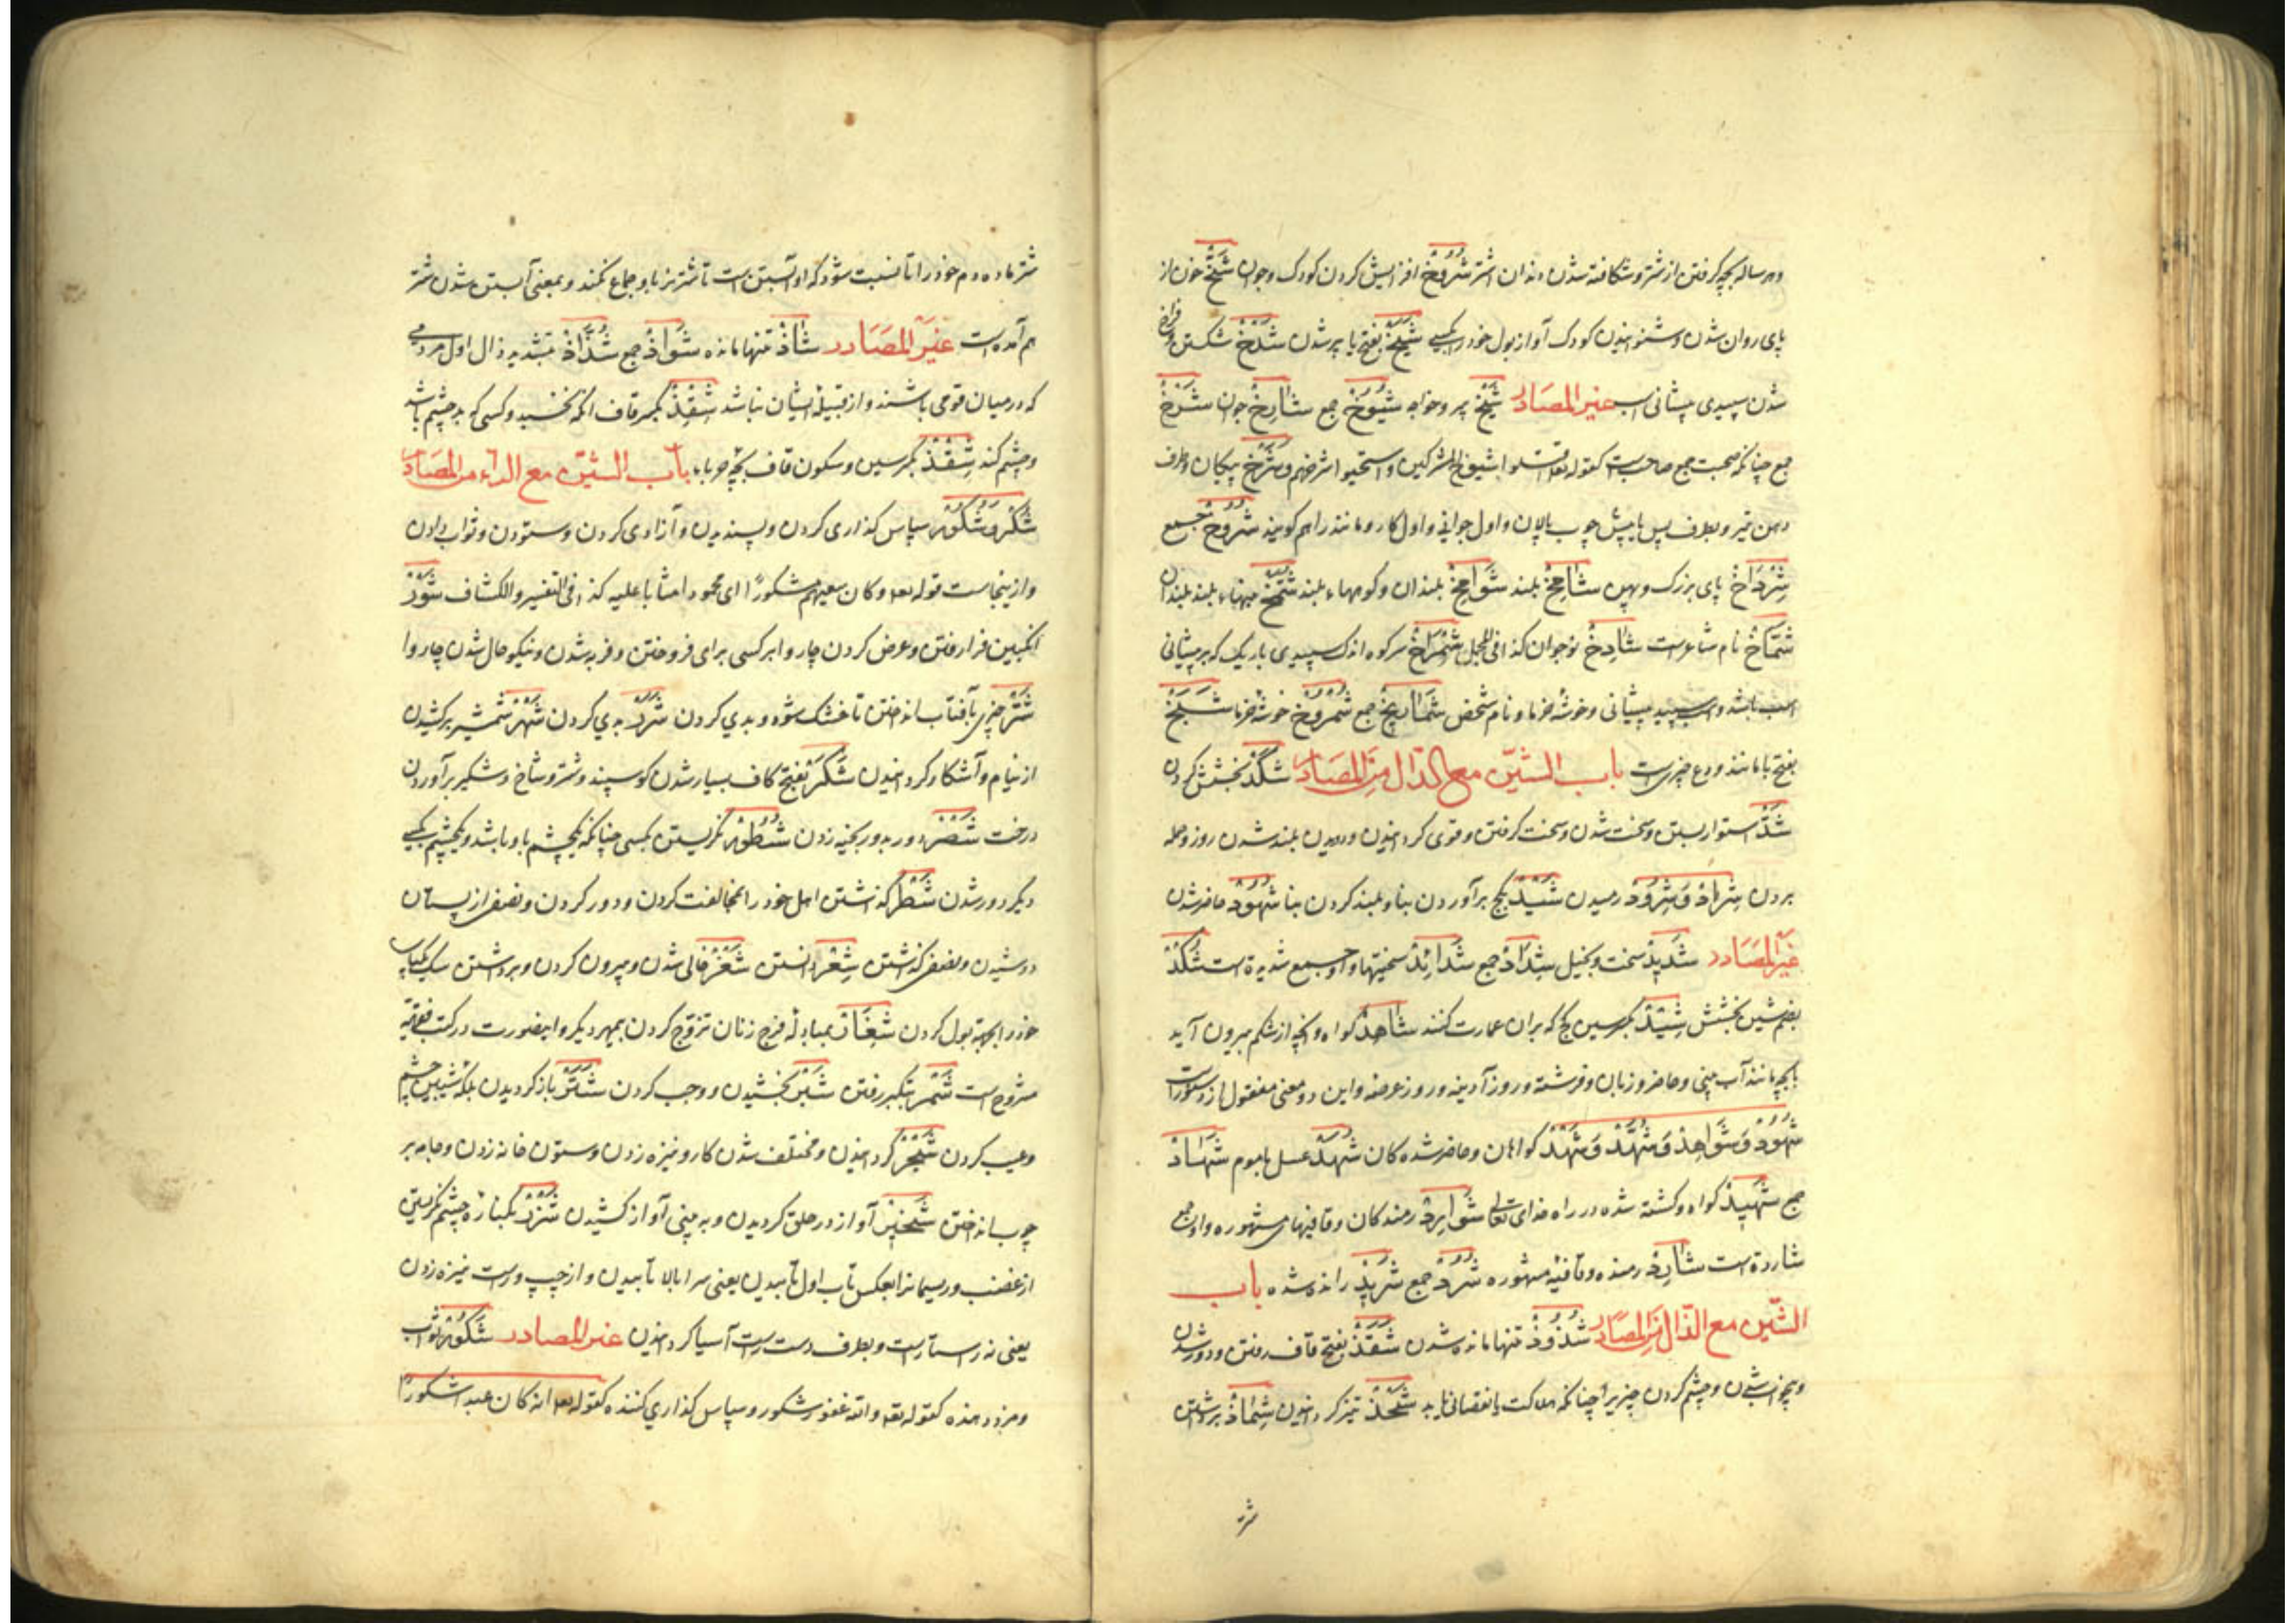 وهر ساله بچه گرفتن از شتر و شکافته شدن دندان اشتر شُرُوْخ افزایش کردن کودک و جوان شَخّ خون از
پای روان شدن و شنوانیدن کودک آواز بول خود را بکسی شَیَخ بفتح یا پیر شدن شَدْخ شکستن و فراخ
شدن سپیدی پیشانی اسب غیر المصادر شَیْخ پیر و خواجه شُیُوْخ جمع شَارِخ جوان شَرْخ
جمع چنانکه صحبت جمع صاحب است کقوله اقتلوا شیوخ المشرکین واستحیوا شرخهم و شَرْخ پیکان و طرف
دهن تیر و بطرف پس یا پیش چوب پالان و اول جوانی و اول کار و مانند را هم گویند شُرُوْخ جمع
شِرْدَاخ پای بزرگ و پهن شَامِخ بلند شَوَامِخ بلندان و کوهها بلند شُمَّخ بلندان
شَمَّاخ نام شاعریست شَادِخ نوجوان کذا فی المجمل شِمْرَاخ سر کوه اندک سپیدی باریک که بر پیشانی
اسب باشد و اسب سپید پیشانی و خوشه خرما و نام شخص شَمَارِیْخ جمع شُمْرُوْخ خوشه خرما شَبَخ
بفتح با مانند چیزیست باب الشین مع الدال من المصادر شَکْد بخشش کردن
شَدّ استوار بستن و سخت شدن و سخت گرفتن و قوی گردانیدن و دویدن بلند شدن روز و حمله
بردن شِرَاد وَ شُرُوْد رمیدن شَیْد بگچ برآوردن بنا و بلند کردن بنا شُهُوْد حاضر شدن
غیر المصادر شَدِیْد سخت و بخیل شِدَاد جمع شَدَائِد سختیها و او جمع شدیدة است شُکْد
بضم شین بخشش شِیْد بکسر شین گچ که بران عمارت کنند شَاهِد گواه و آنچه از شکم بیرون آید
با بچه مانند آب بینی و حاضر و زبان و فرشته و روز آدینه و روز عرفه و این دو معنی منقول از
شُهُوْد وَ شَوَاهِد وَ شُهَّد وَ شَهْد گواهان و حاضر شده کان شَهْد عسل با موم شِهَاد
جمع شَهِیْد گواه و کشته شده در راه خدای تعالی شَوَارِد رمندگان و قافیهای مشهوره و او جمع
شاردة است شَارِد رمنده و قافیه مشهوره شُرُد جمع شَرِیْد رانده شده باب
الشین مع الذال من المصادر شُذُوْذ تنها مانده شدن شَقَذ بفتح قاف رفتن و دور شدن
و بیخواب شدن و چشم کردن چیزیرا چنانکه هلاکت یا نقصانی یابد شَحْذ تیز گردانیدن شِمَاذ برداشتن
شتر
شتر ماده دم خود را تا نسبت شود که او آبستن است تا شتر نر با و جماع نکند و بمعنی آبستن شدن شتر
هم آمده است غیر المصادر شَاذّ تنها مانده شَوَاذّ جمع شُذَّاذ بتشدید ذال اول مردمی
که در میان قومی باشند و از قبیله ایشان نباشد شَقِذ بکسر قاف آنکه نخسپد و کسی که بد چشم باشد
و چشم کند شِقْذ بکسر شین و سکون قاف بچه حربا باب الشین مع الراء من المصادر
شُکْر وَ شُکُوْر سپاس گذاری کردن و پسندیدن و آزادی کردن و ستودن و ثواب دادن
و ازینجاست قوله تعه و کان سعیهم مشکورًا ای محمود امثابا علیه کذا فی التفسیر والکشاف شَوْر
انگبین فرا رفتن و عرض کردن چاروا بر کسی برای فروختن و فربه شدن و نیکو حال شدن چاروا
شَرّ چیزی بآفتاب انداختن تا خشک شود و بدی کردن شَرَر بدی کردن شَهْر شمشیر برکشیدن
از نیام و آشکار گردانیدن شَکَر بفتح کاف بسیار شدن گوسپند و شتر و شاخ و شکیر برآوردن
درخت شَصْر دور بدور بخیه زدن شُطُوْر نگریستن بکسی چنانکه یکچشم با و باشد و یکچشم بکسی
دیگر و دور شدن شَطْر گذاشتن اهل خود را بمخالفت کردن و دور کردن و نصفی از پستان
دوشیدن و نصفی گذاشتن شِعْر دانستن شَغْر خالی شدن و بیرون کردن و برداشتن سگ یکپای
خود را بجهة بول کردن شِغَار بمبادله فرج زنان تزوج کردن بیمهر دیگر و اینصورت در کتب فقهیه
مشروح است شَمْر بتکبر رفتن شَبْر بخشیدن و وجب کردن شَتَر باز گردیدن پلک شیبین چشم
و عیب کردن شَجْر گردانیدن و مختلف شدن کار و نیزه زدن و ستون خانه زدن و جامه بر
چوب انداختن شَخِیْر آواز در حلق گردیدن و به بینی آواز کشیدن شَزْر بکناره چشم نگریستن
از غضب و ریسمانرا بعکس تاب اول تابیدن یعنی سرا بالا تابیدن و از چپ و راست نیزه زدن
یعنی نه راستا راست و بطرف دست راست آسیا گردانیدن غیر المصادر شَکُوْر ثواب
و مزد دهنده کقوله تعه والله غفور شکور و سپاس گذاری کننده کقوله تعه انه کان عبدا شکورًا